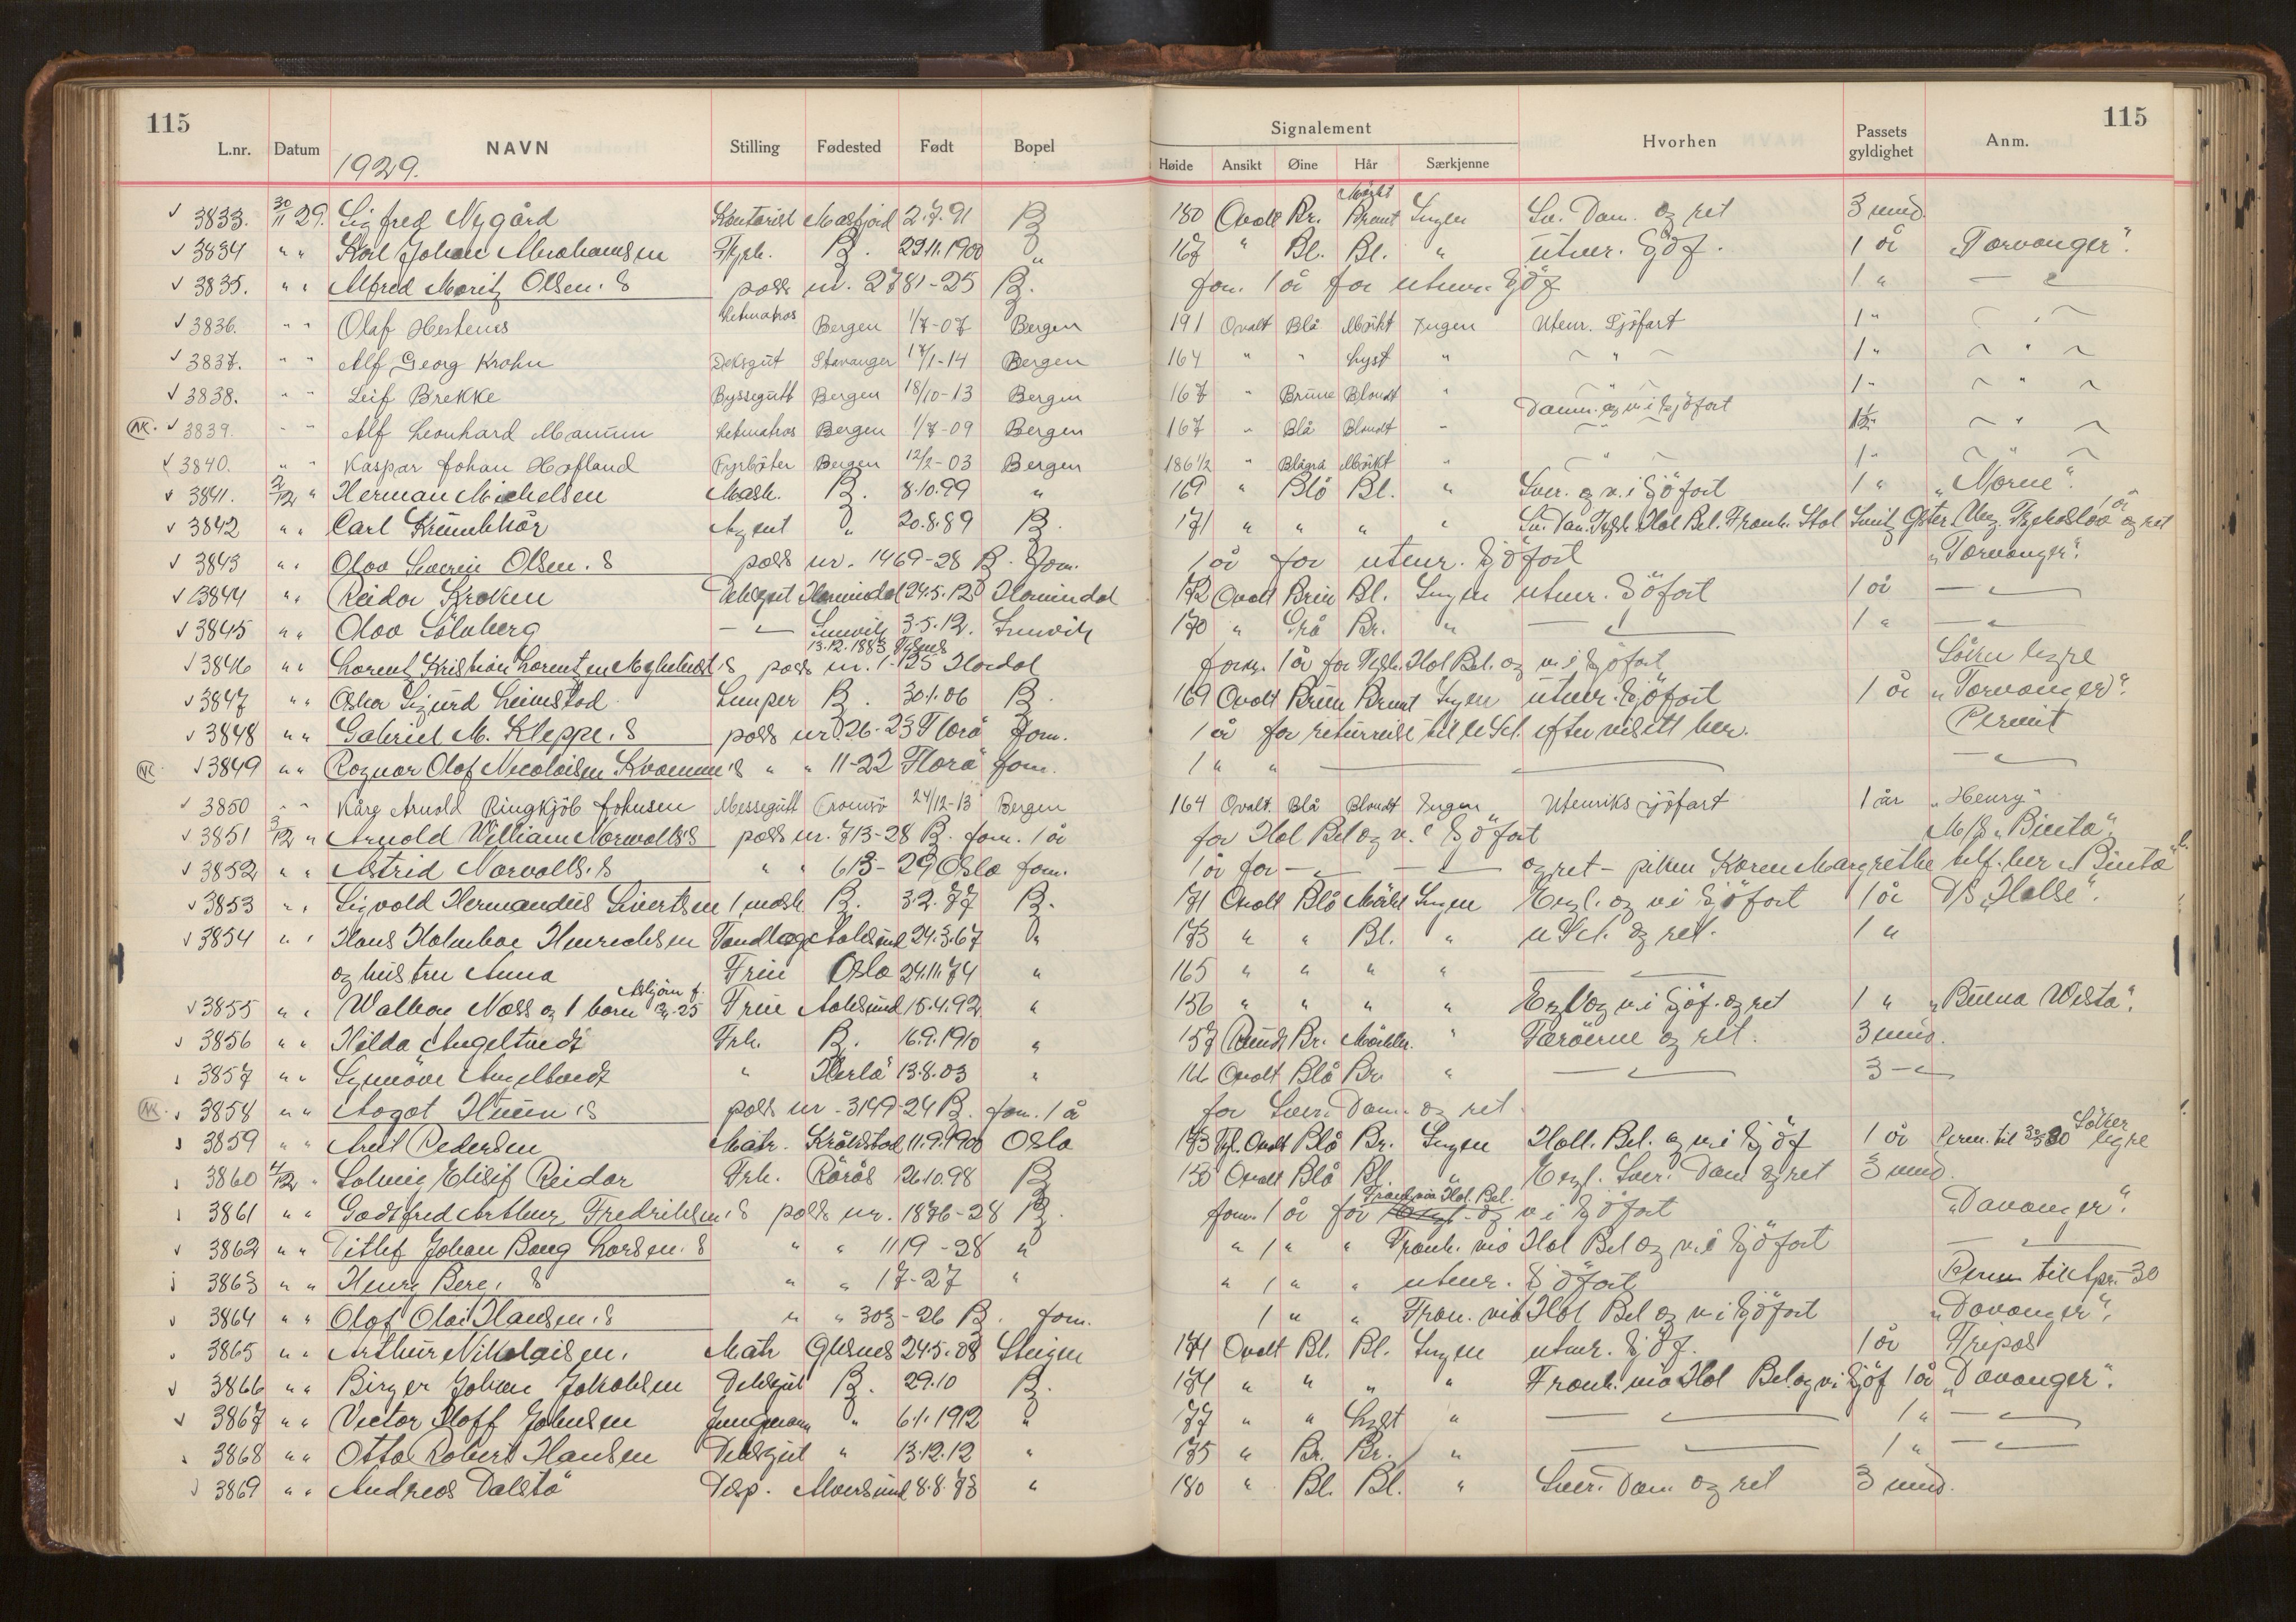 115
115
L.nr. Datum NAVN Stilling Fødested Født Bopel
Signalement Hvorhen Passets gyldighet Anm.
Høide Ansikt Øine Hår Særkjenne
1929.
3833. 30/11 29. Sigfred Nygård Kontorist Masfjord 2.7.91 B 180 Ovalt Br. Mørkt Brunt Ingen Sv. Dan. og ret 3 mnd.
3834 " " Karl Johan Abrahamsen Fyrb. B. 29.11.1900 " 167 " Bl. Bl. " utenr. Sjöf. 1 år "Torvanger".
3835. " " Alfred Moritz Olsen's pass nr. 2781-25 B. forn. 1 år for utenr. Sjöf 1 " — " —
3836. " " Olaf Hestenes Letmatros Bergen 1/7-07 Bergen 191 Ovalt Blå Mörkt Ingen Utenr. Sjöfart 1 " "
3837. " " Alf Georg Krohn Deksgut Stavanger 17/1-14 Bergen 164 " " Lyst " " 1 " "
3838. " " Leif Brekke Byssegutt Bergen 18/10-13 Bergen 167 " Brune Blondt " " 1 " "
Danm. og v. i Sjöfart
NK. 3839. " " Alf Leonhard Manum Letmatros Bergen 1/7-09 Bergen 167 " Blå Blondt " " "
3840. " " Kaspar Johan Hofland Fyrböter Bergen 12/2-03 Bergen 186 1/2 " Blågrå Mörkt " " 1 " "
3841. 2/12 " Herman Michelsen Mask. B. 8.10.99 " 169 " Blå Bl. " Sver. og v. i Sjöfart 1 " "Morne".
3842 " " Carl Krumbhör Agent " 20.8.89 B. 171 " " " " Sv. Dan. Tysk. Hol Bel. Frank. Ital Sveitz Öster. Ung. Tjekoslov og ret 1 år
3843 " " Olav Severin Olsen's pass nr. 1469-28 B. forn. 1 år for utenr. Sjöfart "Torvanger".
3844 " " Reidar Kroken Deksgut Hornindal 24.5.12 Hornindal 172 Ovalt Brun Bl. Ingen utenr. Sjöfart 1 år — " —
3845 " " Olav Sölvberg — " — Innvik 3.5.12. Innvik 170 " Grå Br. " — " — 1 " — " —
13.12.1883 Tysnes
3846 " " Lorentz Kristian Lorentzen Myhelvedt's pass nr. 1-125 Hordal forny. 1 år for Tysk. Hol Bel. og v. i Sjöfart Söker hyre
3847 " " Oskar Sigurd Leimstad Lemper B. 30.1.06 B. 169 Ovalt Brun Brunt Ingen utenr. Sjöfart 1 år "Torvanger".
3848 " " Gabriel M. Kleppe's pass nr 26-23 Florö forn. 1 år for returreise til U Sd. efter visitt her. Permit
NK. 3849 " " Ragnar Olaf Nicolaisen Kvamme's " " 11-22 Florö forn. 1 " " — " — — " —
3850 " " Kåre Arnold Ringkjöb Johnsen Messegutt Tromsö 24/12-13 Bergen 164 Ovalt. Blå Blondt Ingen Utenriks sjöfart 1 år "Henry"
3851 3/12 " Arnold William Norvalls's pass nr. 713-28 B. forn. 1 år for Hol Bel og v. i Sjöfart M/S "Binta".
3852 " " Astrid Norvalls's " " 613-29 Oslo forn. 1 år for — " — — " — og ret - piken Karen Margrethe "Binta"
3853 " " Sigvald Hermandus Sivertsen 1 mask. B. 3.2.77 B. 171 Ovalt Blå Mörkt Ingen Engl. og v. i Sjöfart 1 år D/S "Halse".
3854 " " Hans Holmboe Henrichsen Tandlæge Aalesund 24.3.67 " 173 " " Bl. " U Sd. og ret. 1 "
og hustru Anna Frue Oslo 24.11.74 " 165 " " " " — " —
3855 " " Walborg Næss og 1 barn Asbjörn f. 25 Frue Aalesund 15.4.92 " 156 " " " " Engl og v. i Sjöf. og ret 1 " "Buena Vista".
3856 " " Hilda Angeltvedt Frk. B. 16.9.1910 " 157 Rundt Br. Mörkbr. " Færöerne og ret. 3 mnd.
3857 " " Synnöve Angeltvedt " Herlø 13.8.03 " 166 Ovalt Blå Br. " — " — 3 - " -
NK. 3858 " " Aagot Huun's pass nr. 3149-24 B. forn. 1 å for Sver. Danm. og ret
3859 " " Arnt Pedersen Matr. Kråkstad 11.9.1900 Oslo 183 Ovalt Blå Br. Ingen Holl. Bel. og v. i Sjöf 1 år Perm. til Söker hyre
3860 4/12 " Solveig Elisif Reidar Frk. Rörös 26.10.98 B 150 Ovalt Blå Bl. " Engl. Sver. Dan og ret 3 mnd.
Frank. via Hol. Bel.
3861 " " Godtfred Arthur Fredriksen's pass nr. 1876-28 B. forn. 1 år for og v i Sjöfart "Davanger".
3862 " " Ditlef Johan Bang Larsen's " " 1119-28 " " 1 " " Frank. via Hol Bel og v. i Sjöfart — " —
3863 " " Henry Berg's " " 17-27 " " 1 " " utenr. Sjöfart Perm til Apr. 30
3864 " " Olaf Olai Hansen's " " 303-26 B. forn. 1 " " Fran. via Hol Bel og v i Sjöfart "Davanger".
3865 " " Arthur Nikolaisen. Matr 24.5.08 Steigen 174 Ovalt Bl. Bl. Ingen utenr. Sjöf. 1 år Tripos
3866 " " Birger Johan Jakobsen Deksgut B. 29.10 B. 184 " " " " Frank. via Hol Bel. og v i Sjöf 1 år "Davanger".
3867 " " Victor Hoff Johnsen Jungmann " 6.1.1912 " 177 " " Lyst " — " — 1 " — " —
3868 " " Otto Robert Hansen Deksgut " 13.12.12 " 175 " Br. Br. " — " — 1 " — " —
3869 " " Andreas Dalstö Disp. Alversund 8.8.73 " 180 " Bl. Bl. " Sver. Dan. og ret 3 mnd.